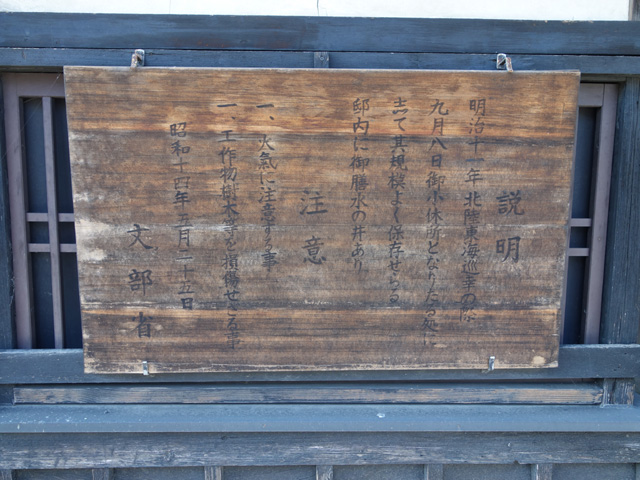 説明
明治十一年北陸東海巡幸の際
九月八日御小休所となりたる処に
志て其規模よく保存せらる
邸内に御膳水の井あり
注意
一、火氣に注意する事
一、工作物樹木等を損傷せざる事
昭和十四年三月二十五日
文部省